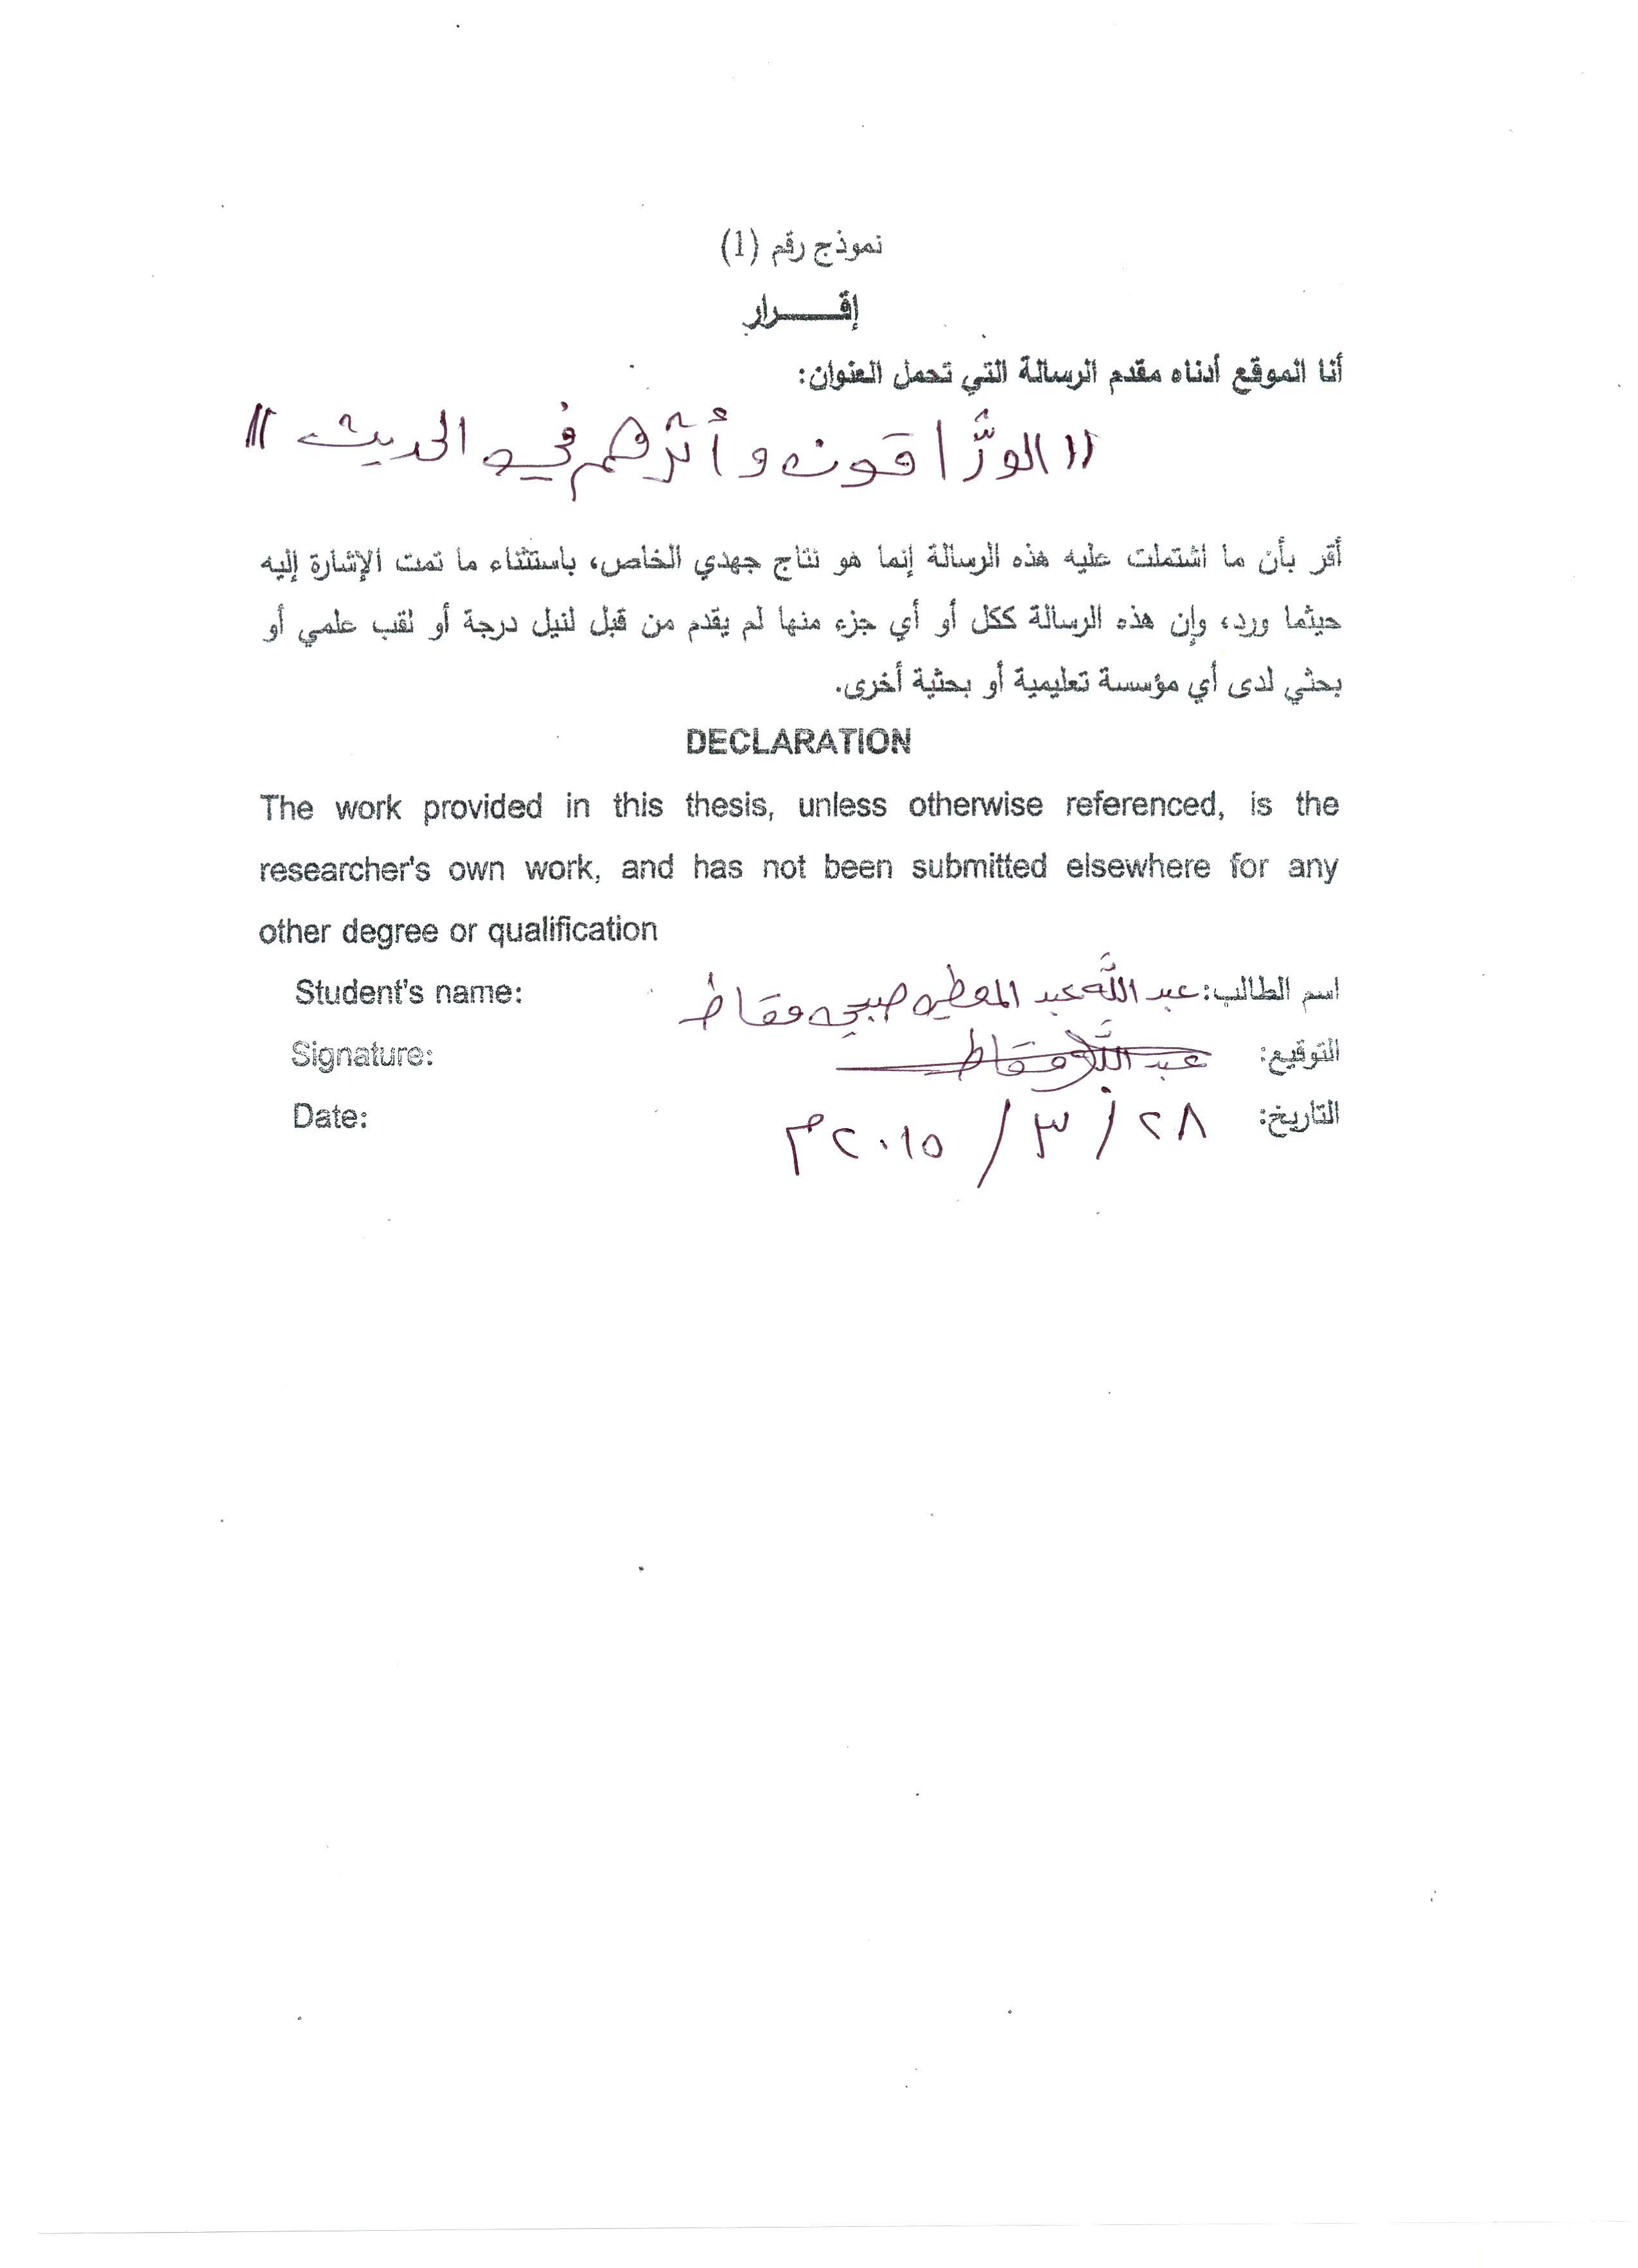 نموذج رقم (1)
إقــــرار
أنا الموقع أدناه مقدم الرسالة التي تحمل العنوان:
(( الورَّاقون وأثرهم في الحديث ))
أقر بأن ما اشتملت عليه هذه الرسالة إنما هو نتاج جهدي الخاص، باستثناء ما تمت الإشارة إليه
حيثما ورد، وإن هذه الرسالة ككل أو أي جزء منها لم يقدم من قبل لنيل درجة أو لقب علمي أو
بحثي لدى أي مؤسسة تعليمية أو بحثية أخرى.
DECLARATION
The work provided in this thesis, unless otherwise referenced, is the
researcher's own work, and has not been submitted elsewhere for any
other degree or qualification
Student's name: اسم الطالب: عبد اللَّه عبد المعطي صبحي مقاط
Signature: التوقيع: عبد اللَّه مقاط
Date: التاريخ: ٢٨ / ٣ / ٢٠١٥م